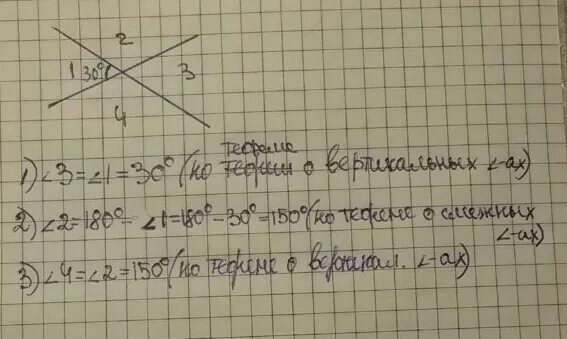 2
1 30° 3
4
теореме
1) ∠3=∠1=30° (по теории о вертикальных ∠-ах)
2) ∠2=180°-∠1=180°-30°=150° (по теореме о смежных
∠-ах)
3) ∠4=∠2=150° (по теореме о вертикал. ∠-ах)